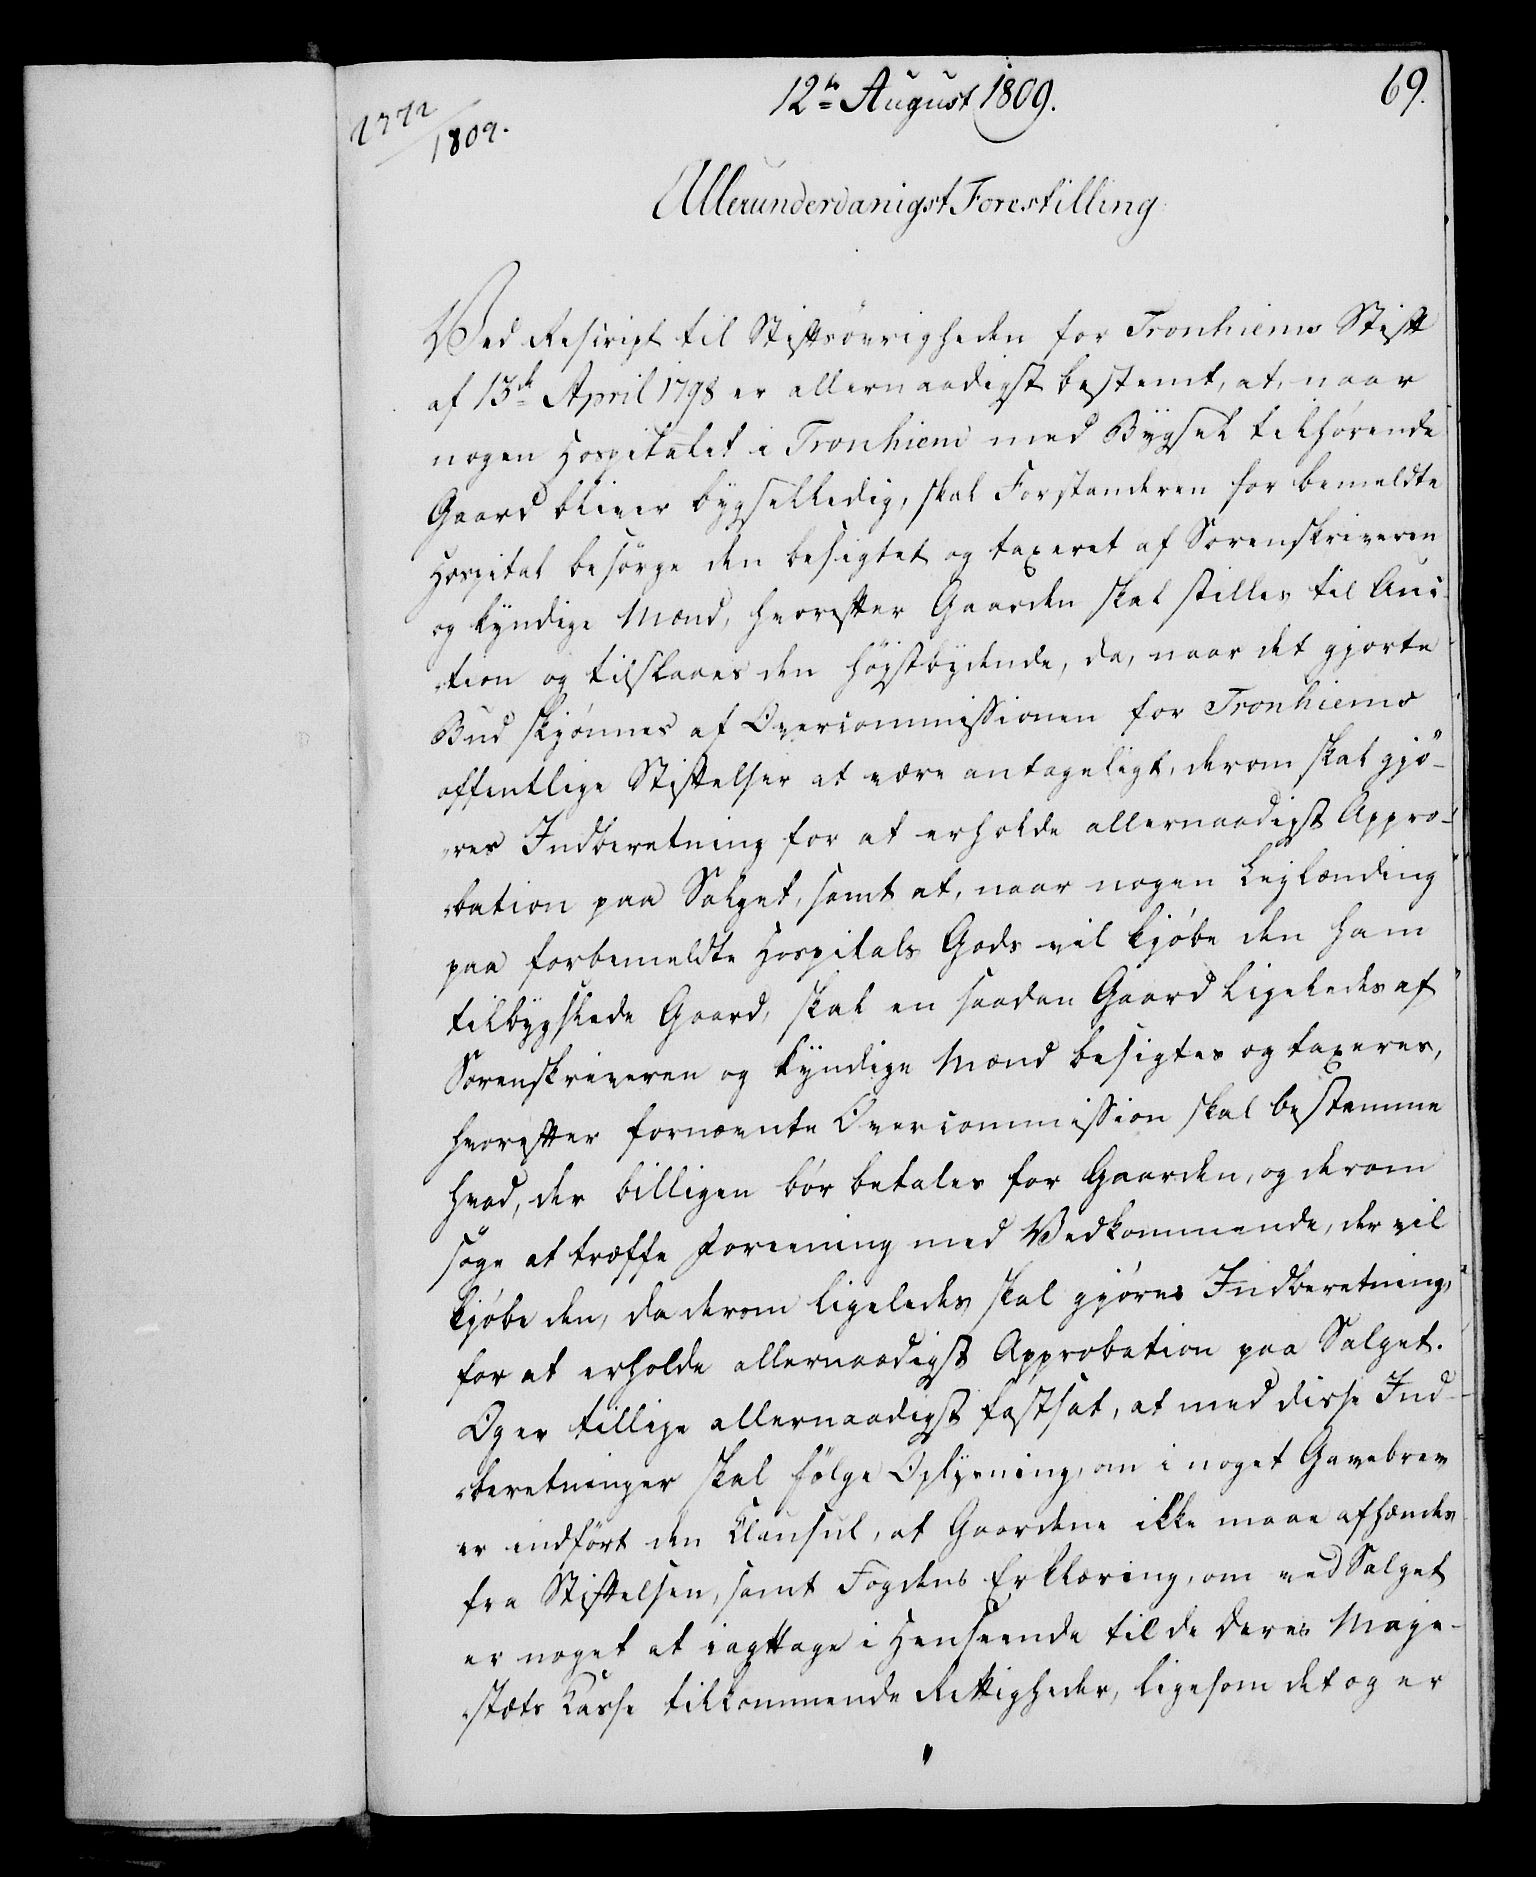 12te August 1809.
69.
1772
1809.
Allerunderdanigst Forestilling
Ved Rescript til Stiftsövrigheden for Tronhiems Stift
af 13de April 1798 er allernaadigst bestemt, at, naar
nogen Hospitalet i Tronhiem med Bygsel tilhørende
Gaard bliver bygselledig, skal Forstanderen for bemeldte
Hospital besörge den besigtet og taxeret af Sorenskriveren
og kyndige Mænd, hvorefter Gaarden skal stilles til Auc-
tion og tilslaaes den höystbydende, da, naar det gjorte
Bud skjönnes af Overcommissionen for Tronhiems
offentlige Stiftelser at være antageligt, derom skal gjö-
res Indberetning for at erholde allernaadigst Appro-
bation paa Salget, samt at, naar nogen Leylænding
paa forbemeldte Hospitals Gods vil kjöbe den ham
tilbygslede Gaard, skal en saadan Gaard ligeledes af
Sorenskriveren og kyndige Mænd besigtes og taxeres,
hvorefter fornævnte Overcommission skal bestemme
hvad, der billigen bör betales for Gaarden, og derom
söge at træffe Foreening med Vedkommende, der vil
kjöbe den, da derom ligeledes skal gjöres Indberetning,
for at erholde allernaadigst Approbation paa Salget.
Og er tillige allernaadigst fastsat, at med disse Ind-
beretninger skal fölge Oplysning, om i noget Gavebrev
er indfört den Clausul, at Gaardene ikke maae afhændes
fra Stiftelsen, samt Fogdens Erklæring, om ved Salget
er noget at iagttage i Henseende til de Deres Maje-
stæts Casse tilkommende Rettigheder, ligesom det og er